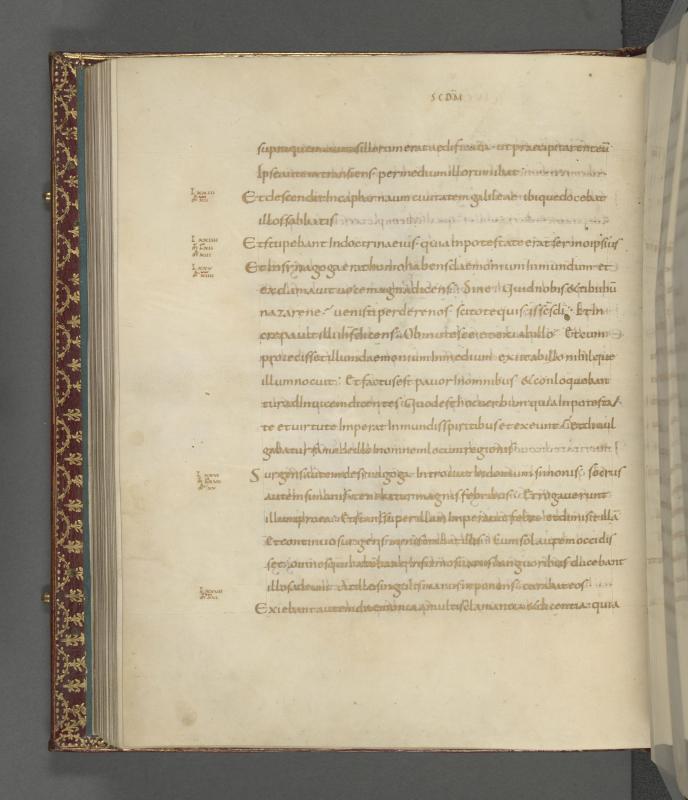 SCDM
supra quem civitas illorum erat aedificata · ut praecipitarent eū
Ipse autem transiens · per medium illorum ibat
Et descendit in capharnaum civitatem galileae · ibique docebat
illos sabbatis
Et stupebant In doctrina eius · quia In potestate erat sermo ipsius
Et In synagoga erat homo habens daemonium Inmundum · et
exclamavit voce magna dicens · Sine · Quid nobis & tibi ihu
nazarene · venisti perdere nos · scio te qui sis · scs di · Et In
crepavit illi ihs dicens · Obmutesce · et exi ab illo · Et cum
proiecisset illum daemonium In medium · exiit ab illo nihilque
illum nocuit · Et factus est pavor In omnibus · & conloquebant
tur ad Invicem dicentes · Quod est hoc verbum · quia In potesta
te et virtute Imperat Inmundis spiritibus et exeunt · Et divul
gabatur fama de illo In omnem locum regionis
Surgens autem de synagoga · Introivit In domum simonis · socrus
autem simonis · tenebatur magnis febribus · Et rogaverunt
illum pro ea · Et stans super illam Imperavit febri · et dimisit illā
Et continuo surgens · ministrabat illis · Cum sol autem occidis
set · omnes qui habebant Infirmos variis languoribus ducebant
illos ad eum · At ille singulis manus Inponens · curabat eos ·
Exiebant autem daemonia a multis clamantia · & dicentia · quia